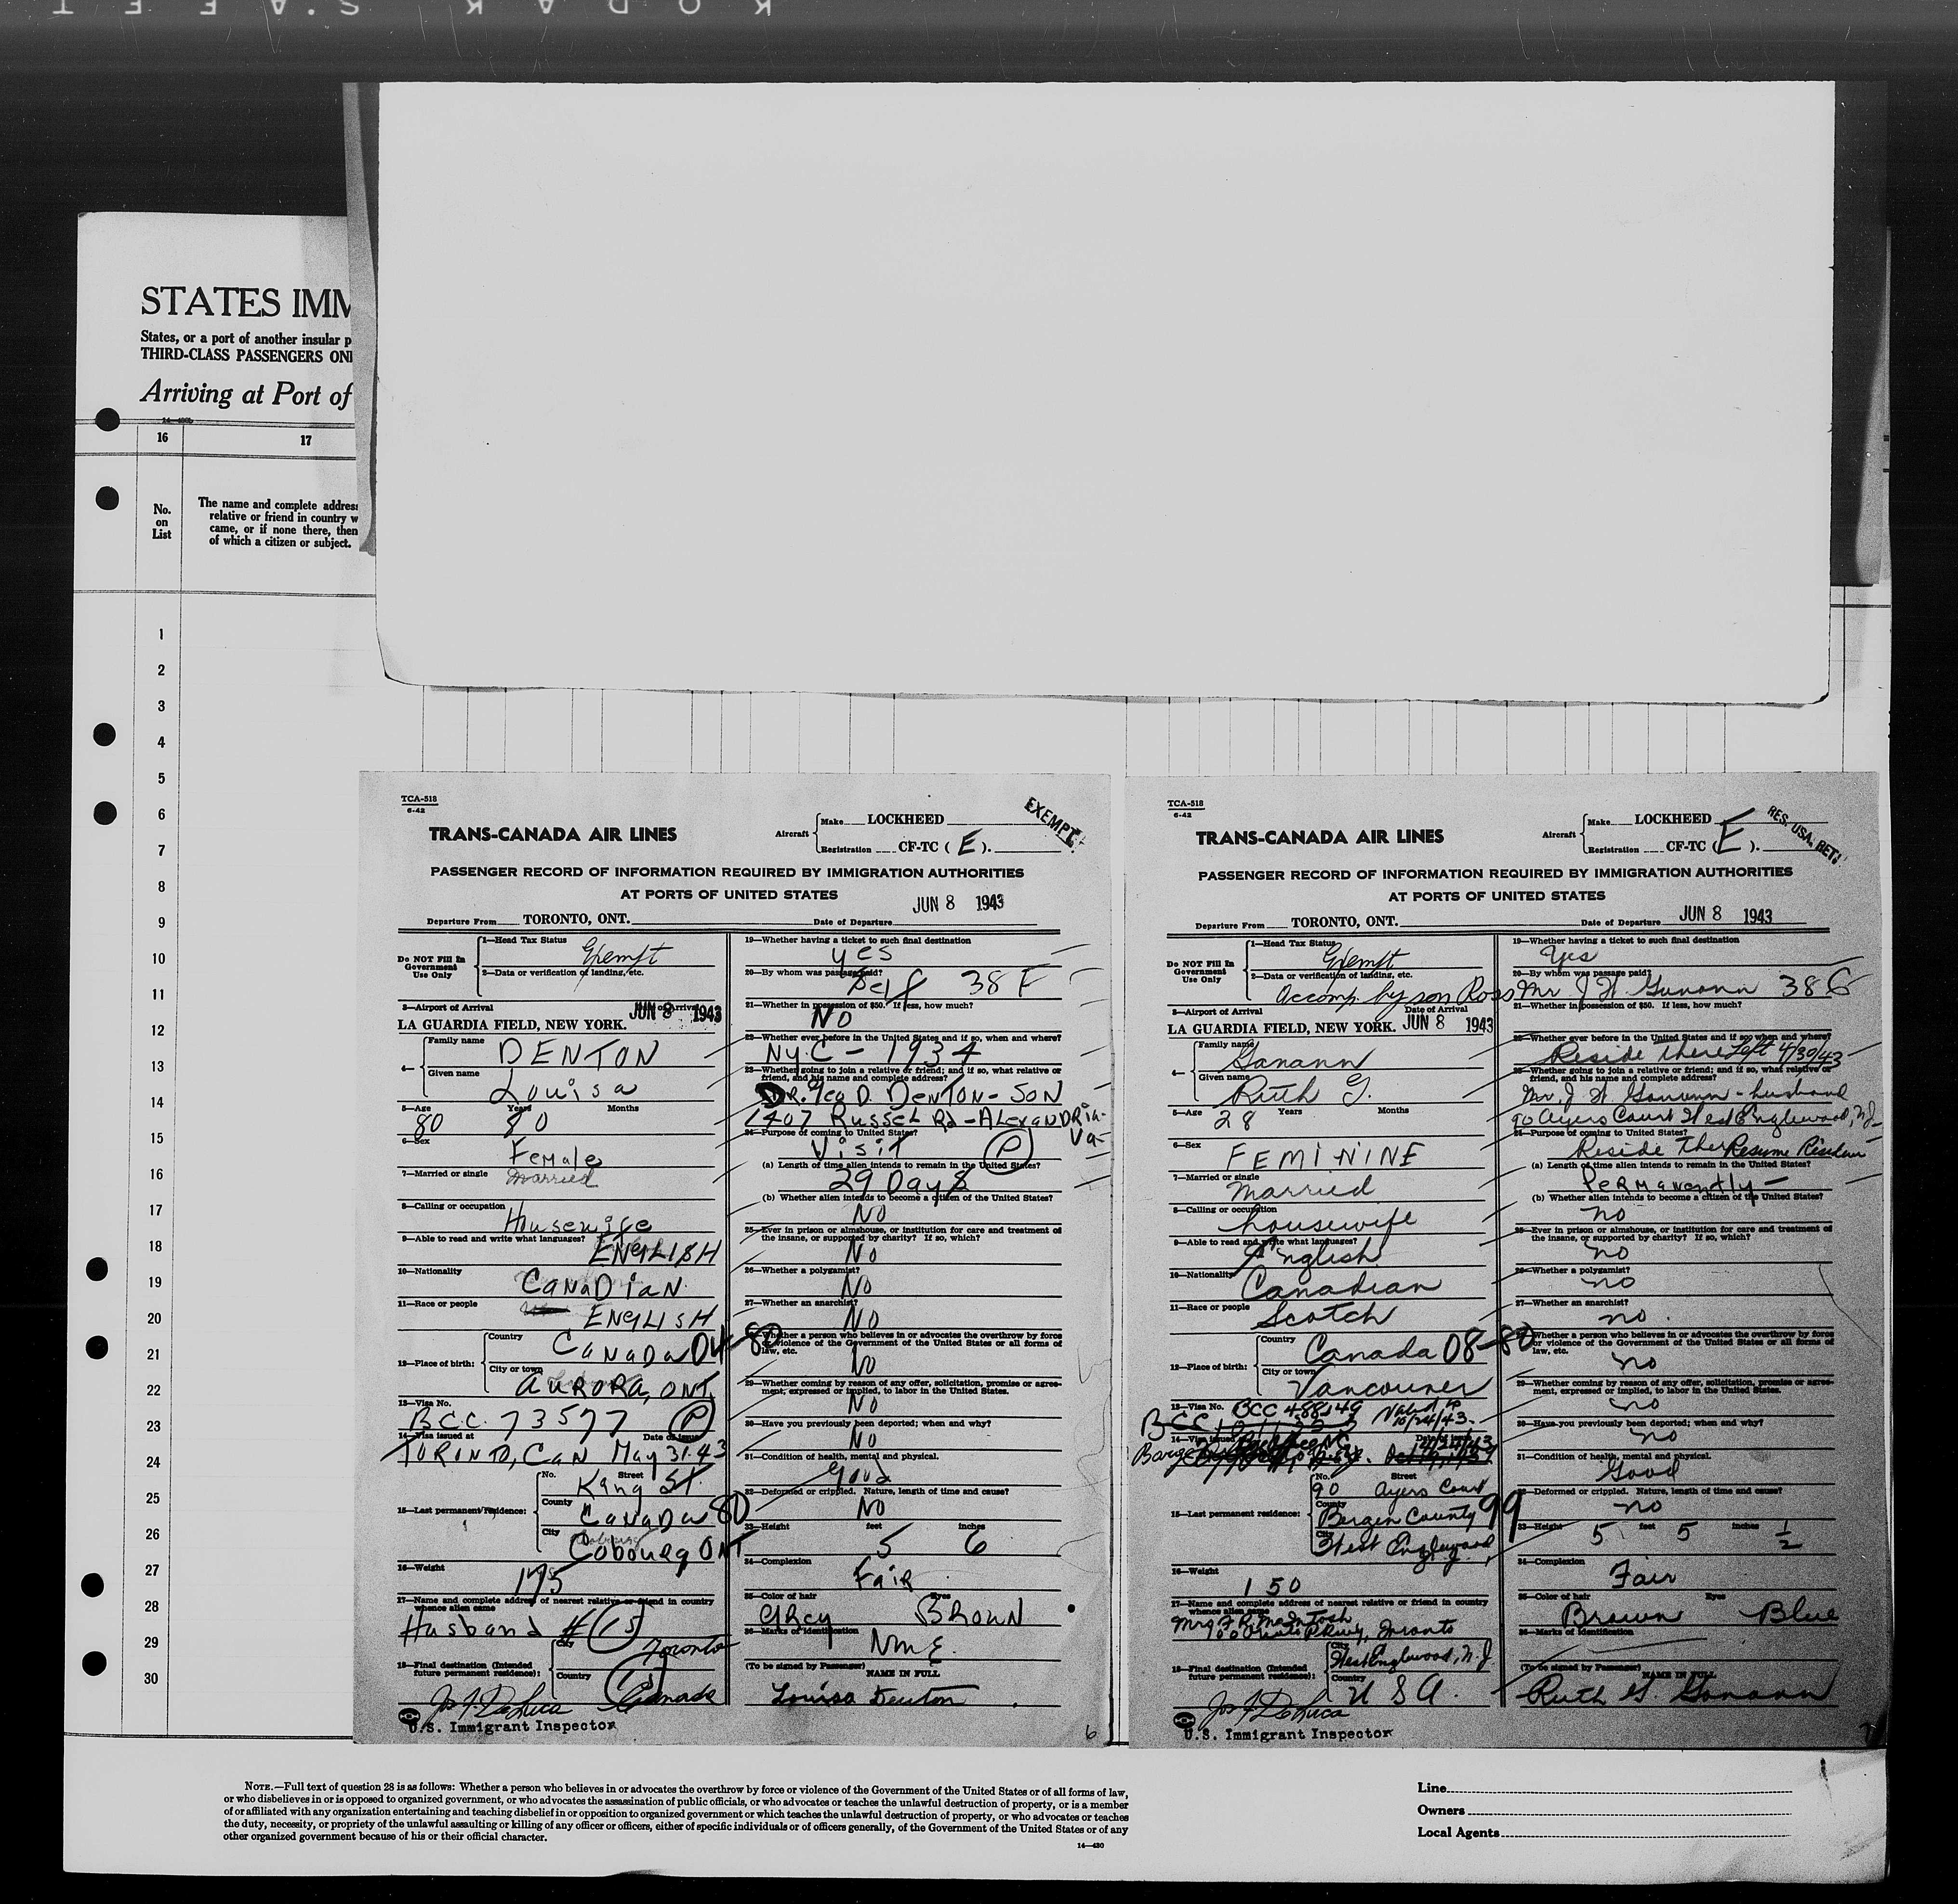 KODAK S.A.F.E.T
STATES IMM
States, or a port of another insular p
THIRD-CLASS PASSENGERS ONL
Arriving at Port of
16 17
No. on List
The name and complete address
relative or friend in country w
came, or if none there, then
of which a citizen or subject.
1
2
3
4
5
6
7
8
9
10
11
12
13
14
15
16
17
18
19
20
21
22
23
24
25
26
27
28
29
30
TCA-518
6-42
TRANS-CANADA AIR LINES
Aircraft Make LOCKHEED
Registration CF-TC ( E ).
EXEMPT
PASSENGER RECORD OF INFORMATION REQUIRED BY IMMIGRATION AUTHORITIES
AT PORTS OF UNITED STATES
JUN 8 1943
Departure From TORONTO, ONT. Date of Departure
Do NOT Fill In Government Use Only
1—Head Tax Status Exempt
2—Data or verification of landing, etc.
3—Airport of Arrival Date of Arrival
LA GUARDIA FIELD, NEW YORK. JUN 8 1943
4— Family name DENTON
Given name Louisa
5—Age Years Months
80 80
6—Sex Female
7—Married or single Married
8—Calling or occupation Housewife
9—Able to read and write what languages? ENGLISH
10—Nationality CANADIAN
11—Race or people ENGLISH
12—Place of birth: Country CANADA 04-80
City or town AURORA, ONT.
13—Visa No. BCC. 73577 P
14—Visa issued at Date of issue
TORINTO, CAN May 31-43
15—Last permanent residence: No. Street King St
County CANADA 80
City Cobourg ONT
16—Weight 175
17—Name and complete address of nearest relative or friend in country whence alien came
Husband # 15
18—Final destination (Intended future permanent residence): City Toronto
Country Canada
Jos F. DeLuca
U.S. Immigrant Inspector
19—Whether having a ticket to such final destination
yes
20—By whom was passage paid?
Self 38 F
21—Whether in possession of $50. If less, how much?
NO
22—Whether ever before in the United States and if so, when and where?
Ny.C - 1934
23—Whether going to join a relative or friend; and if so, what relative or friend, and his name and complete address?
DR. Geo D. DENTON - SON
1407 Russel Rd - Alexandria - Va-
24—Purpose of coming to United States?
Visit P
(a) Length of time alien intends to remain in the United States?
29 Days
(b) Whether alien intends to become a citizen of the United States?
NO
25—Ever in prison or almshouse, or institution for care and treatment of the insane, or supported by charity? If so, which?
NO
26—Whether a polygamist?
NO
27—Whether an anarchist?
NO
Whether a person who believes in or advocates the overthrow by force or violence of the Government of the United States or all forms of law, etc.
NO
29—Whether coming by reason of any offer, solicitation, promise or agreement, expressed or implied, to labor in the United States.
NO
30—Have you previously been deported; when and why?
NO
31—Condition of health, mental and physical.
Good
32—Deformed or crippled. Nature, length of time and cause?
NO
33—Height feet inches
5 6
34—Complexion
Fair
35—Color of hair Eyes
Grey BROWN
36—Marks of identification
NONE
(To be signed by Passenger) NAME IN FULL
Louisa Denton
6
TCA-518
6-42
TRANS-CANADA AIR LINES
Aircraft Make LOCKHEED
Registration CF-TC ( E ).
RES. USA. RET.
PASSENGER RECORD OF INFORMATION REQUIRED BY IMMIGRATION AUTHORITIES
AT PORTS OF UNITED STATES
JUN 8 1943
Departure From TORONTO, ONT. Date of Departure
Do NOT Fill In Government Use Only
1—Head Tax Status Exempt
2—Data or verification of landing, etc.
Accomp. by son Ross
3—Airport of Arrival Date of Arrival
LA GUARDIA FIELD, NEW YORK. JUN 8 1943
4— Family name
Given name Ruth G.
5—Age Years Months
28
6—Sex FEMININE
7—Married or single Married
8—Calling or occupation housewife
9—Able to read and write what languages? English
10—Nationality Canadian
11—Race or people Scotch
12—Place of birth: Country Canada 08-80
City or town Vancouver
13—Visa No. BCC 488149 Valid to 10/24/43
BCC
14—Visa issued Date of issue
15—Last permanent residence: No. Street
90 Ayers Court
County Bergen County 99
City West Englewood N.J.
16—Weight 150
17—Name and complete address of nearest relative or friend in country whence alien came
Mrs F. R. MacIntosh
Toronto
18—Final destination (Intended future permanent residence): City West Englewood, N.J.
Country U S A.
Jos F. DeLuca
U.S. Immigrant Inspector
19—Whether having a ticket to such final destination
Yes
20—By whom was passage paid?
Mr J. H. 38 G
21—Whether in possession of $50. If less, how much?
22—Whether ever before in the United States and if so, when and where?
Reside there Left 4/30/43
23—Whether going to join a relative or friend; and if so, what relative or friend, and his name and complete address?
Mr. J. H. - husband
90 Ayers Court West Englewood, N.J.
24—Purpose of coming to United States?
Reside There Resume Residence
(a) Length of time alien intends to remain in the United States?
Permanently -
(b) Whether alien intends to become a citizen of the United States?
no
25—Ever in prison or almshouse, or institution for care and treatment of the insane, or supported by charity? If so, which?
no
26—Whether a polygamist?
no
27—Whether an anarchist?
no.
Whether a person who believes in or advocates the overthrow by force or violence of the Government of the United States or all forms of law, etc.
no
29—Whether coming by reason of any offer, solicitation, promise or agreement, expressed or implied, to labor in the United States.
no
30—Have you previously been deported; when and why?
no
31—Condition of health, mental and physical.
Good
32—Deformed or crippled. Nature, length of time and cause?
no
33—Height feet inches
5 5 1/2
34—Complexion
Fair
35—Color of hair Eyes
Brown Blue
36—Marks of identification
(To be signed by Passenger) NAME IN FULL
Ruth G.
7
NOTE.—Full text of question 28 is as follows: Whether a person who believes in or advocates the overthrow by force or violence of the Government of the United States or of all forms of law,
or who disbelieves in or is opposed to organized government, or who advocates the assassination of public officials, or who advocates or teaches the unlawful destruction of property, or is a member
of or affiliated with any organization entertaining and teaching disbelief in or opposition to organized government or which teaches the unlawful destruction of property, or who advocates or teaches
the duty, necessity, or propriety of the unlawful assaulting or killing of any officer or officers, either of specific individuals or of officers generally, of the Government of the United States or of any
other organized government because of his or their official character.
14—430
Line
Owners
Local Agents